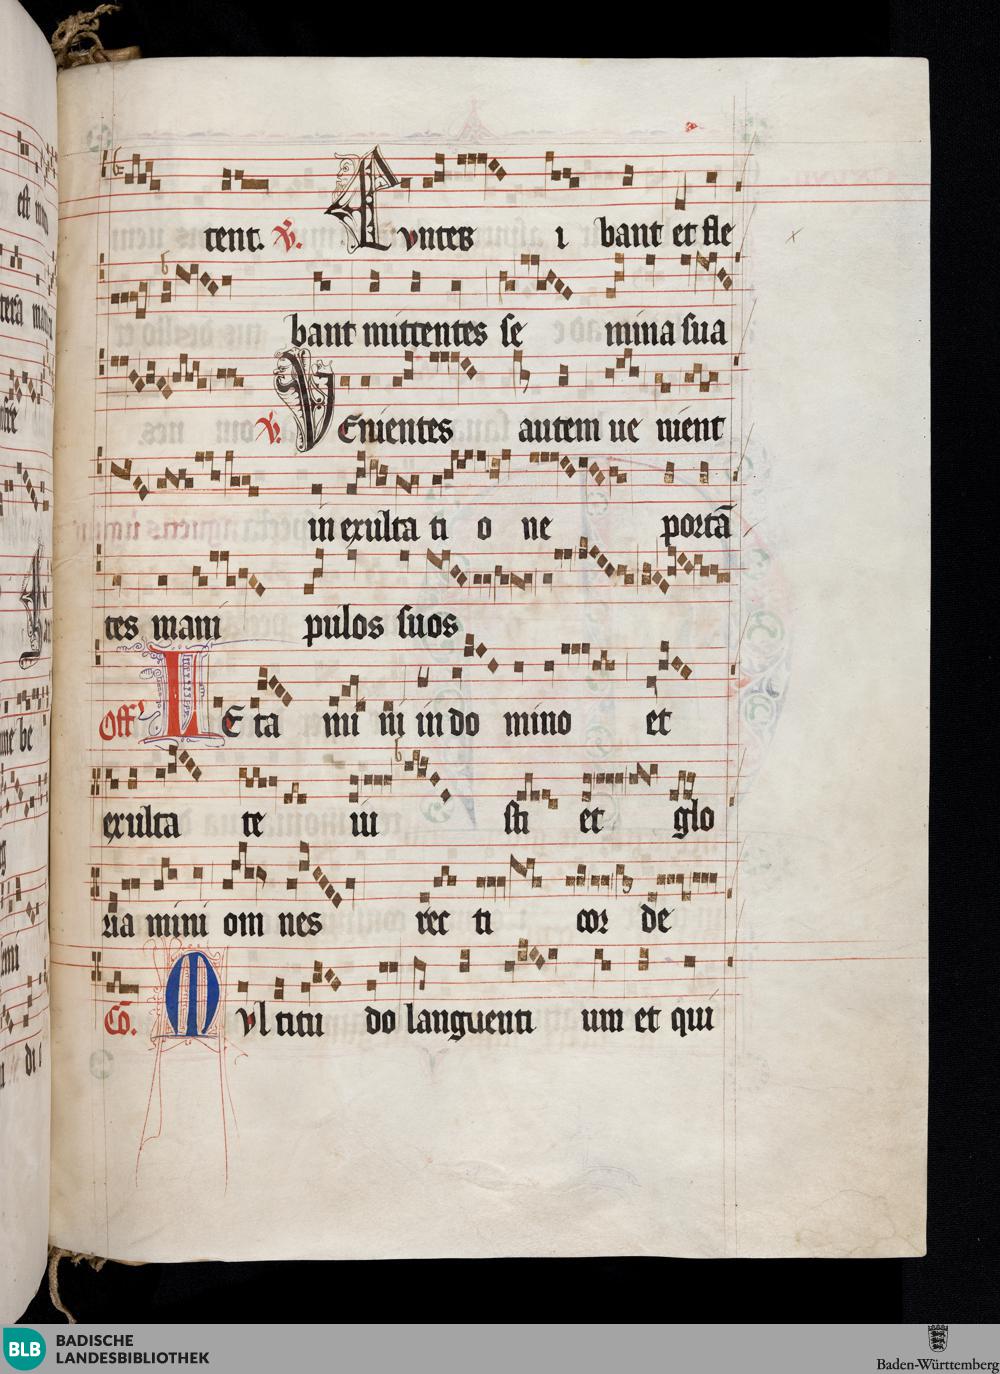 tent. V. Evntes i bant et fle
bant mittentes se mina sua
V. VEnientes autem ue nient
in exulta ti o ne portā
tes mani pulos suos
Off' LE ta mi ni in do mino et
exulta te iu sti et glo
ria mini om nes rec ti cor de
Cō. Mvl titu do languenti um et qui
BLB BADISCHE
LANDESBIBLIOTHEK
Baden-Württemberg